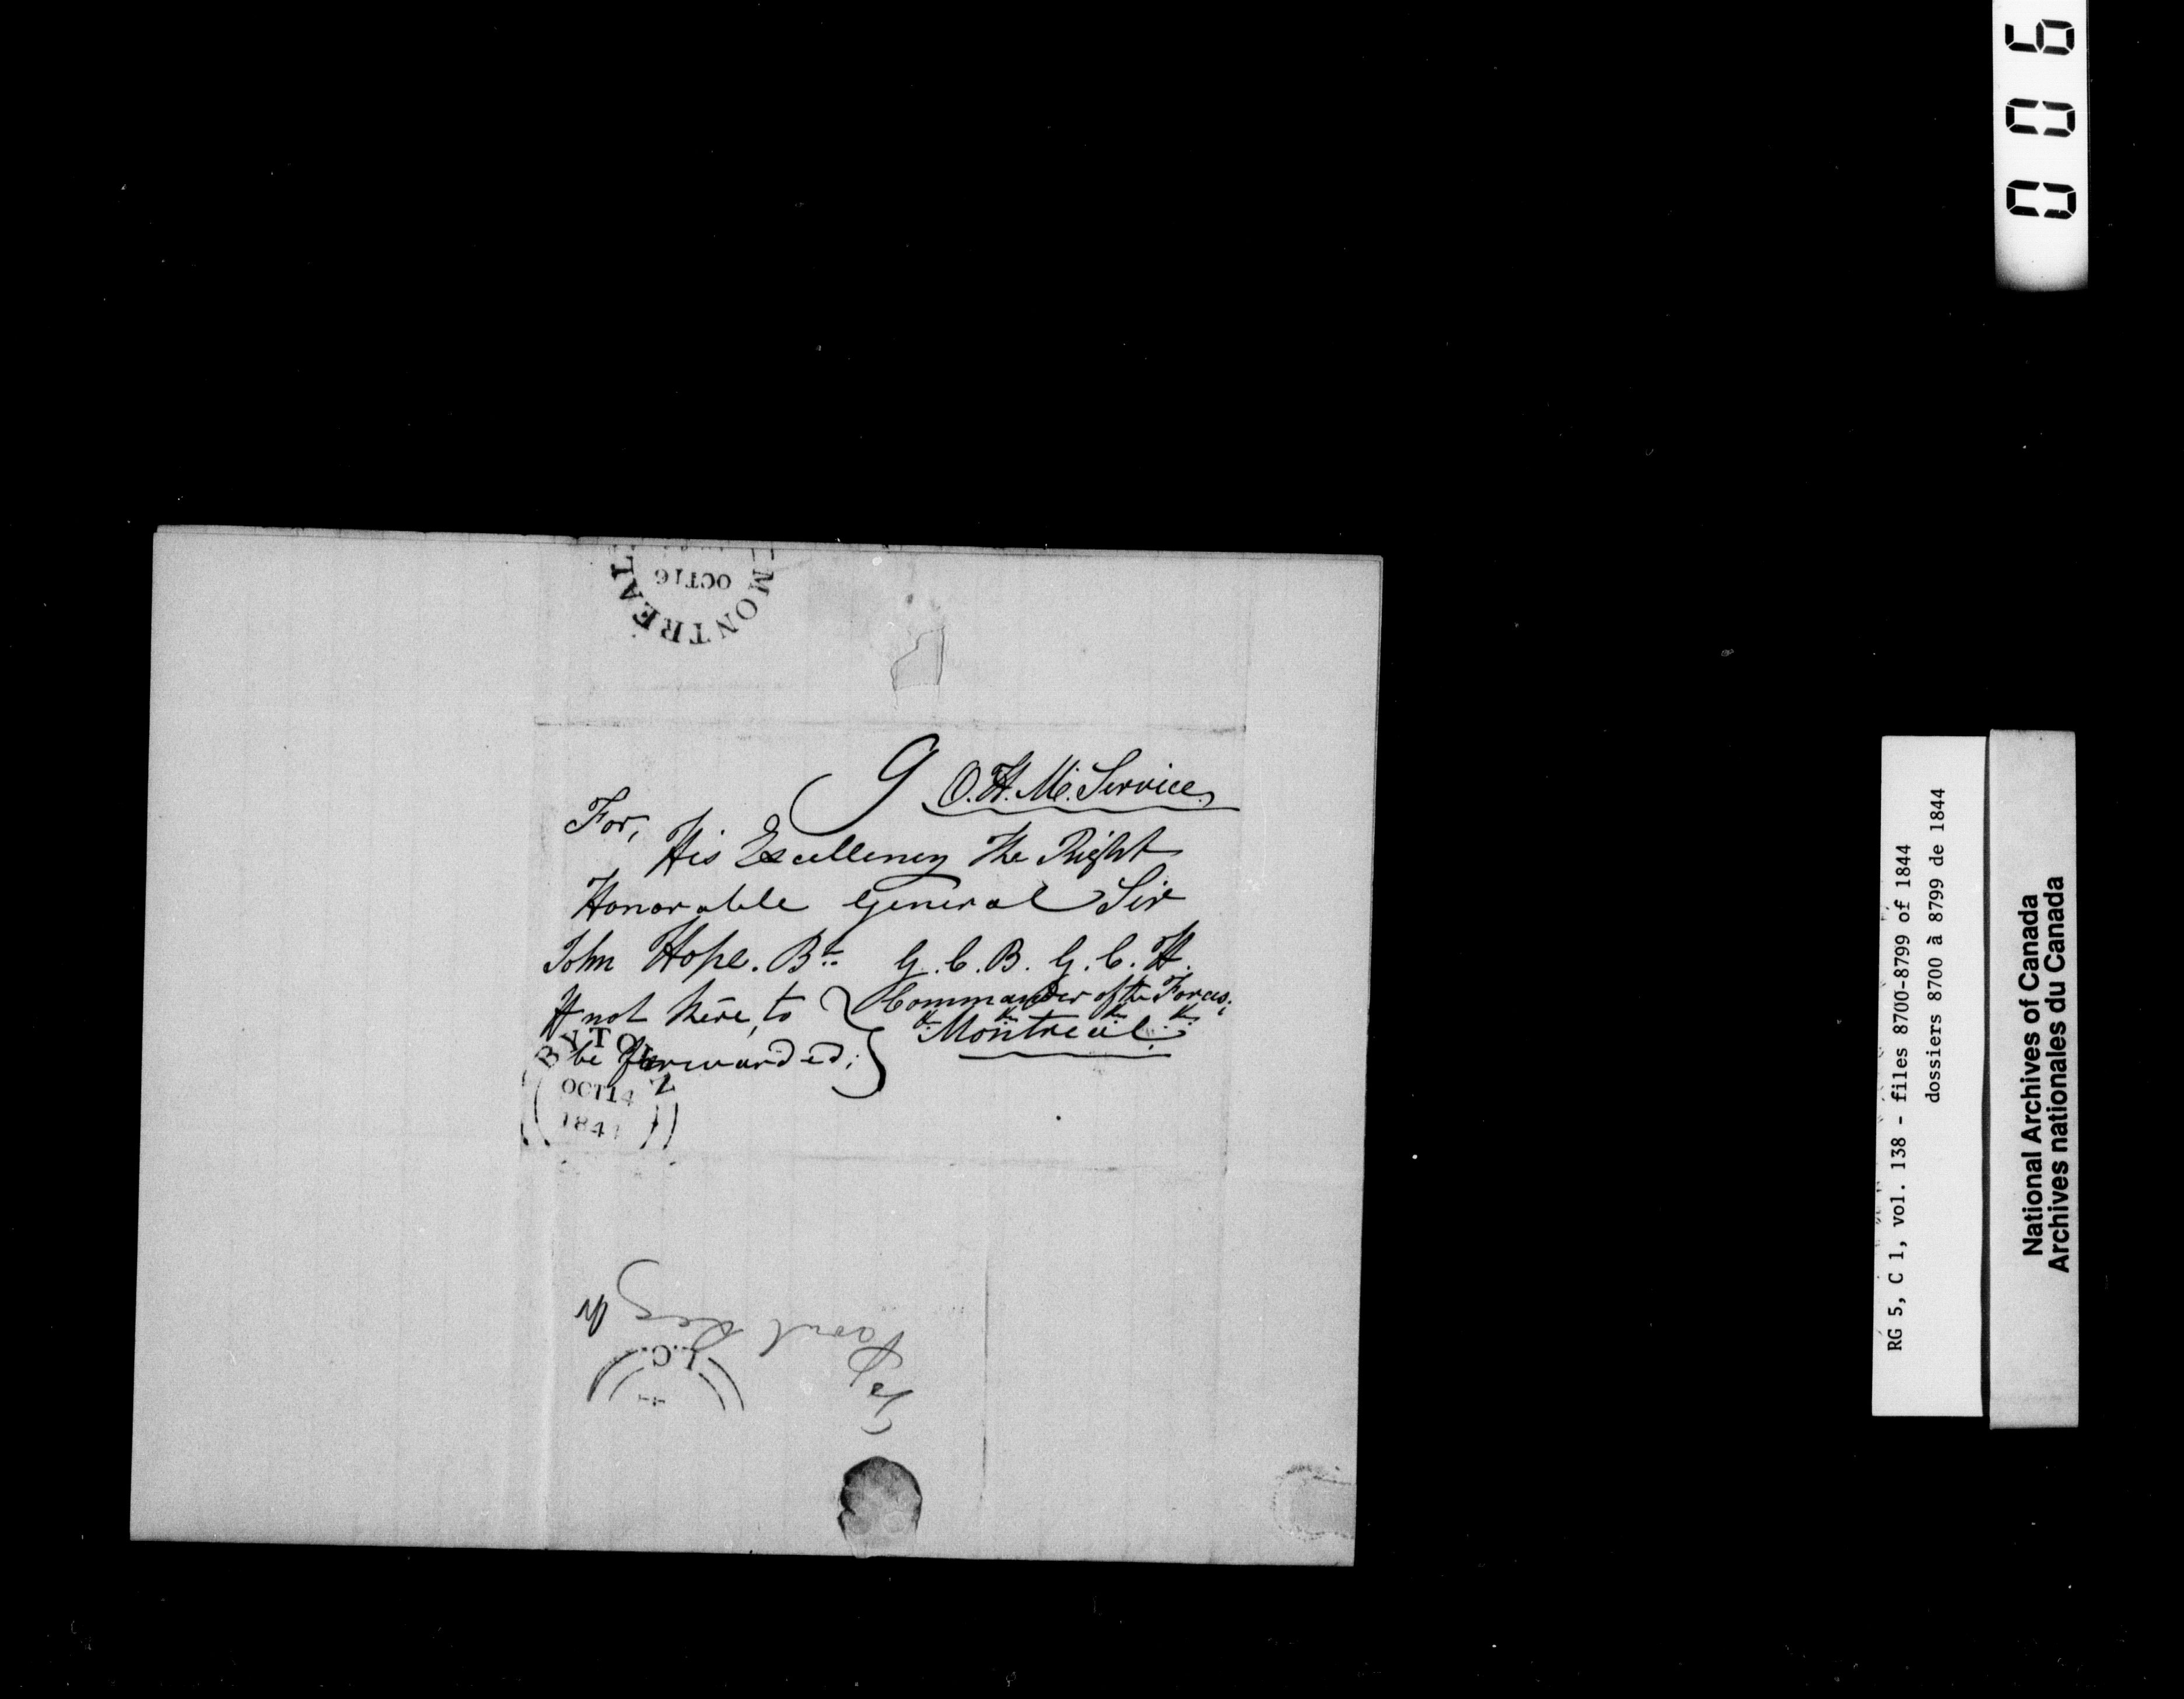 006
MONTREAL
OCT 16
9 O.H.M. Service,
For,
His Excellency The Right
Honorable General Sir
John Hope. Bt. G.C.B. G.C.H.
Commander of the Forces;
&c. &c. &c. &c.
If not here, to
be forwarded;
Montreal.
BYTOWN
OCT 14
184
L.C.
RG 5, C 1, vol. 138 - files 8700-8799 of 1844
dossiers 8700 à 8799 de 1844
National Archives of Canada
Archives nationales du Canada